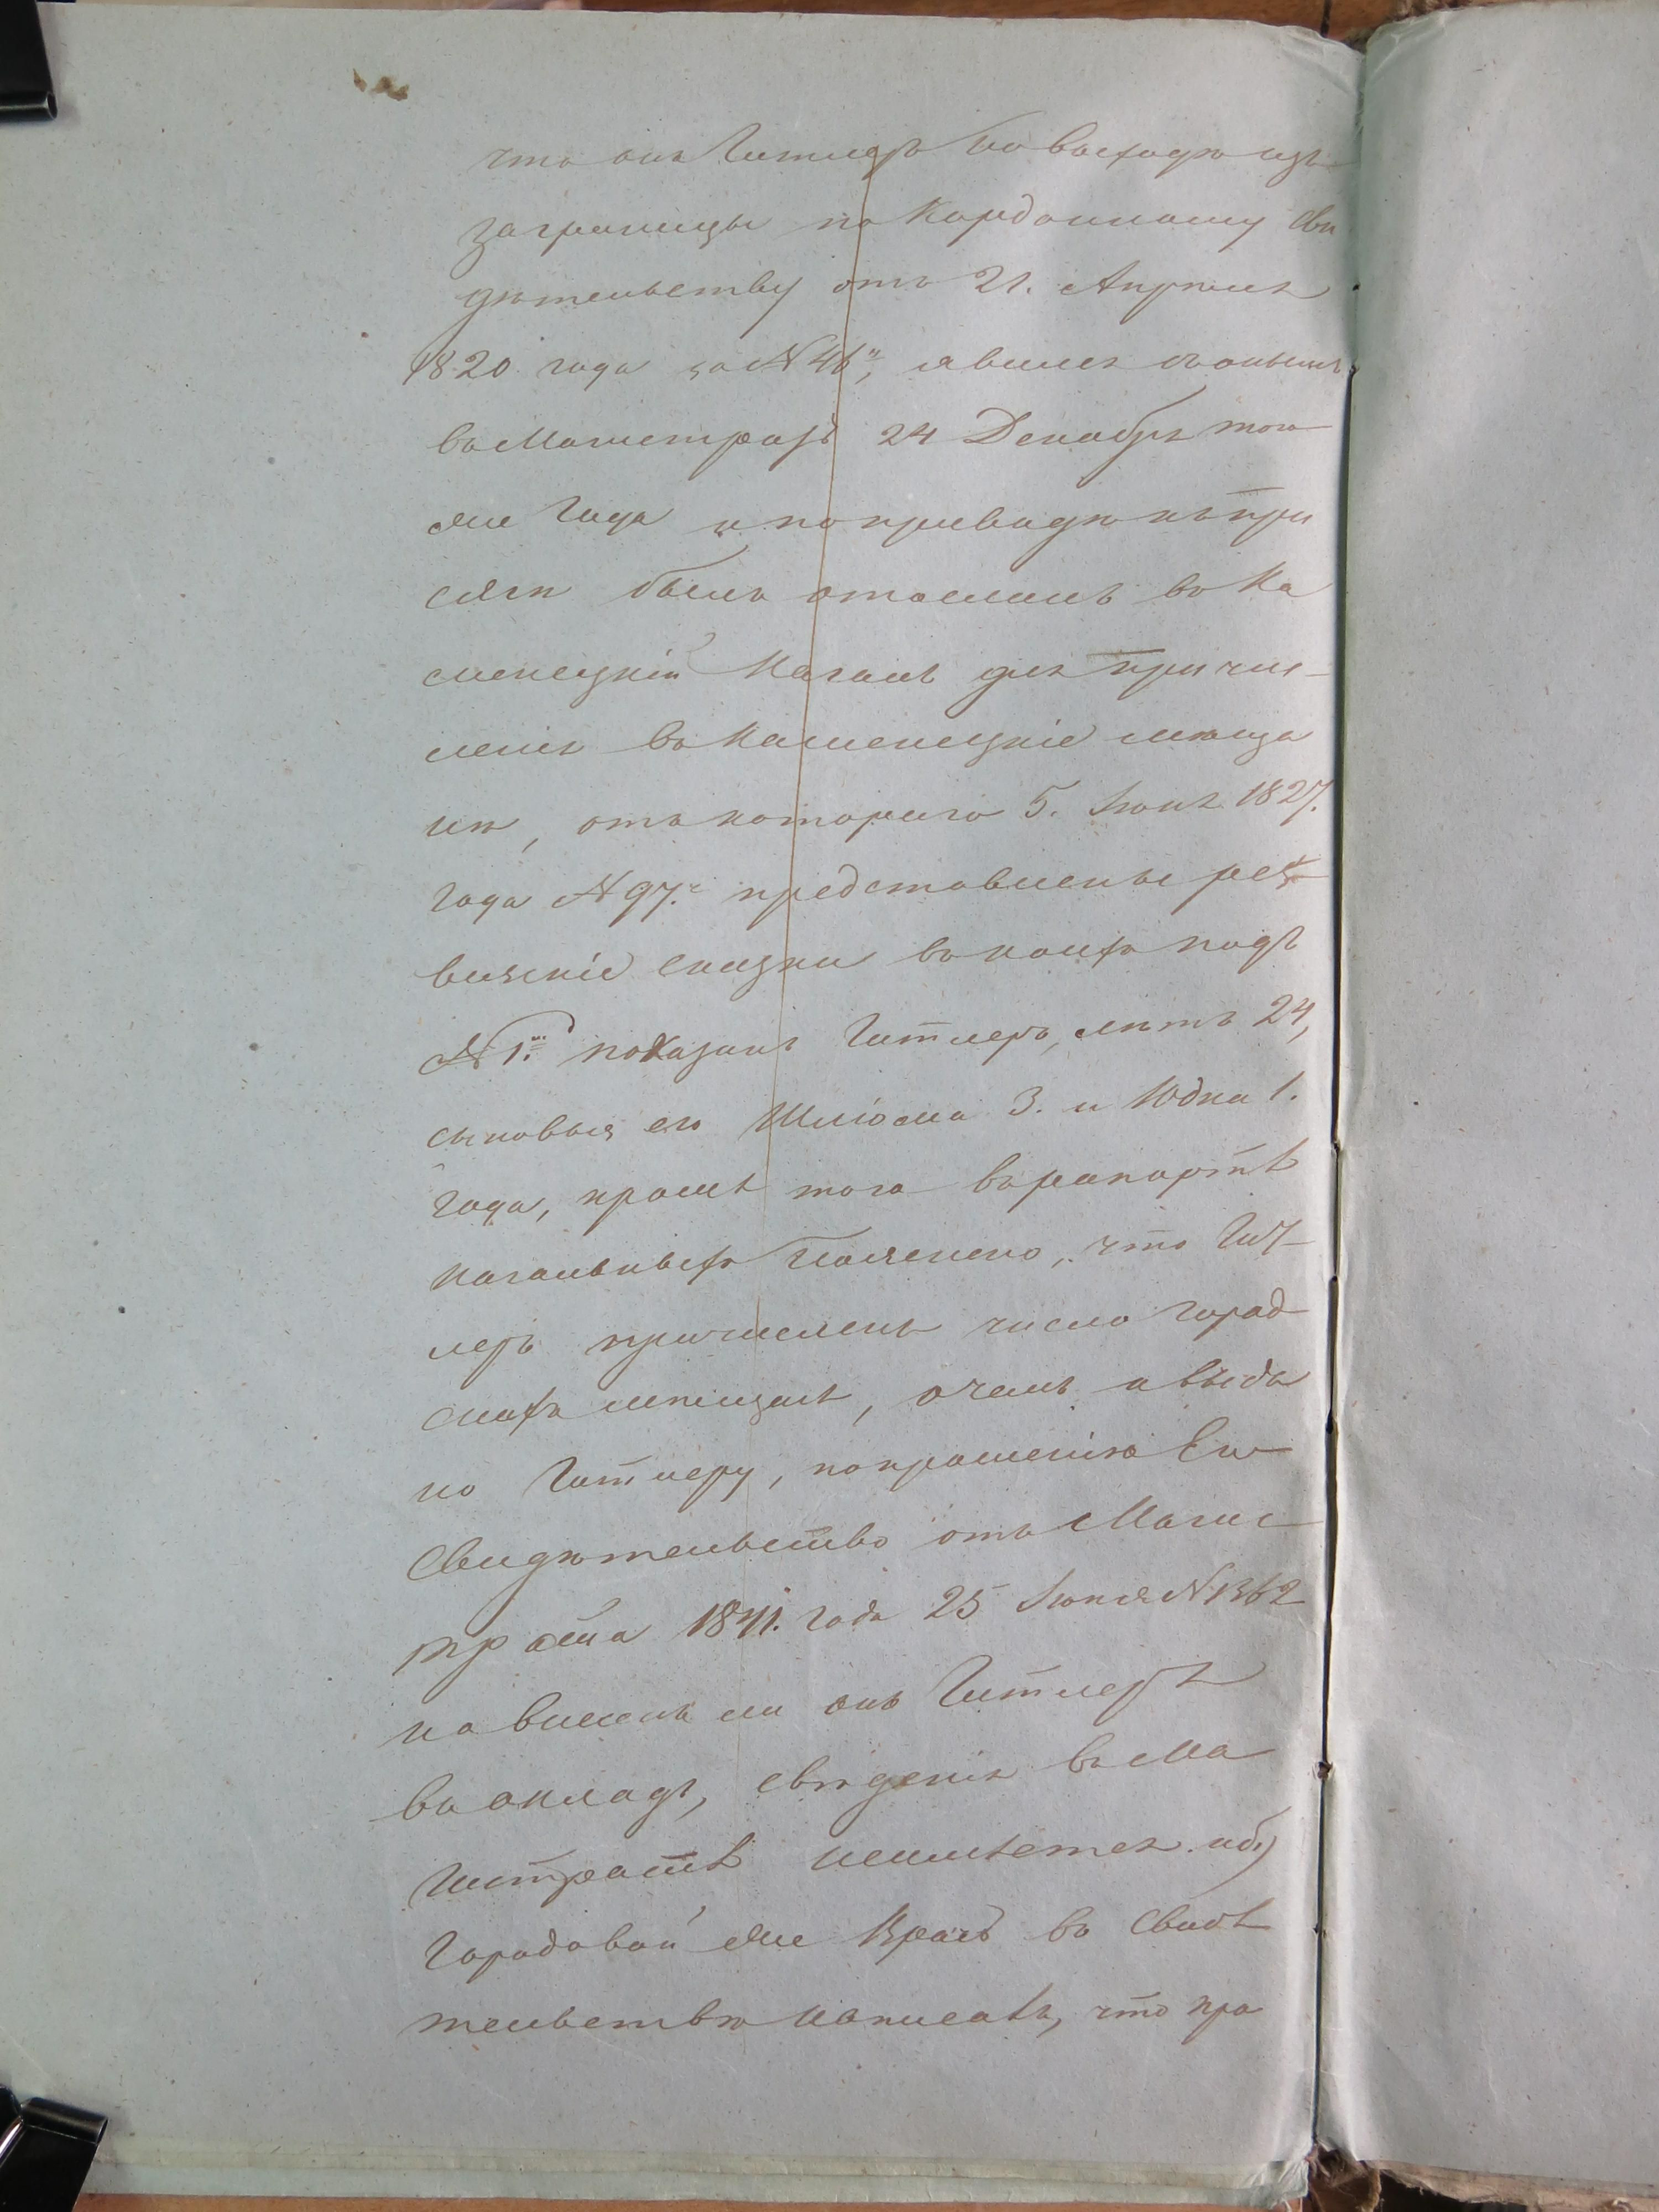 что онъ Гитлеръ по выходѣ изъ
заграницы по Кордонному сви
дѣтельству отъ 21. Апрѣля
1820 года за №46, явился съ онымъ
въ Магистратъ 24 Декабря того
же Года и по приводѣ къ при
сягѣ былъ отосланъ въ Ка
менецкій Кагалъ для причи-
сленія въ Каменецкіе мѣща
не, отъ котораго 5. Іюня 1827.
года №97. представлены ре
визскіе сказки въ коихъ подъ
№1.м показанъ Гитлеръ, лѣтъ 24,
сыновья его Шліома 3. и Юдка 1.
года, кромѣ того въ рапортѣ
кагальныхъ пояснено, что Гит-
леръ причисленъ число город
скихъ мѣщанъ, о чемъ и выда
но Гитлеру, по прошенію Его
Свидѣтельство отъ Магис
трата 1841. года 25 Іюня №1362
но внесенъ ли онъ Гитлеръ
въ окладъ, свѣденія въ Ма
гистратѣ неимѣется.
Городовой же Врачъ въ Свидѣ
тельствѣ написалъ, что про